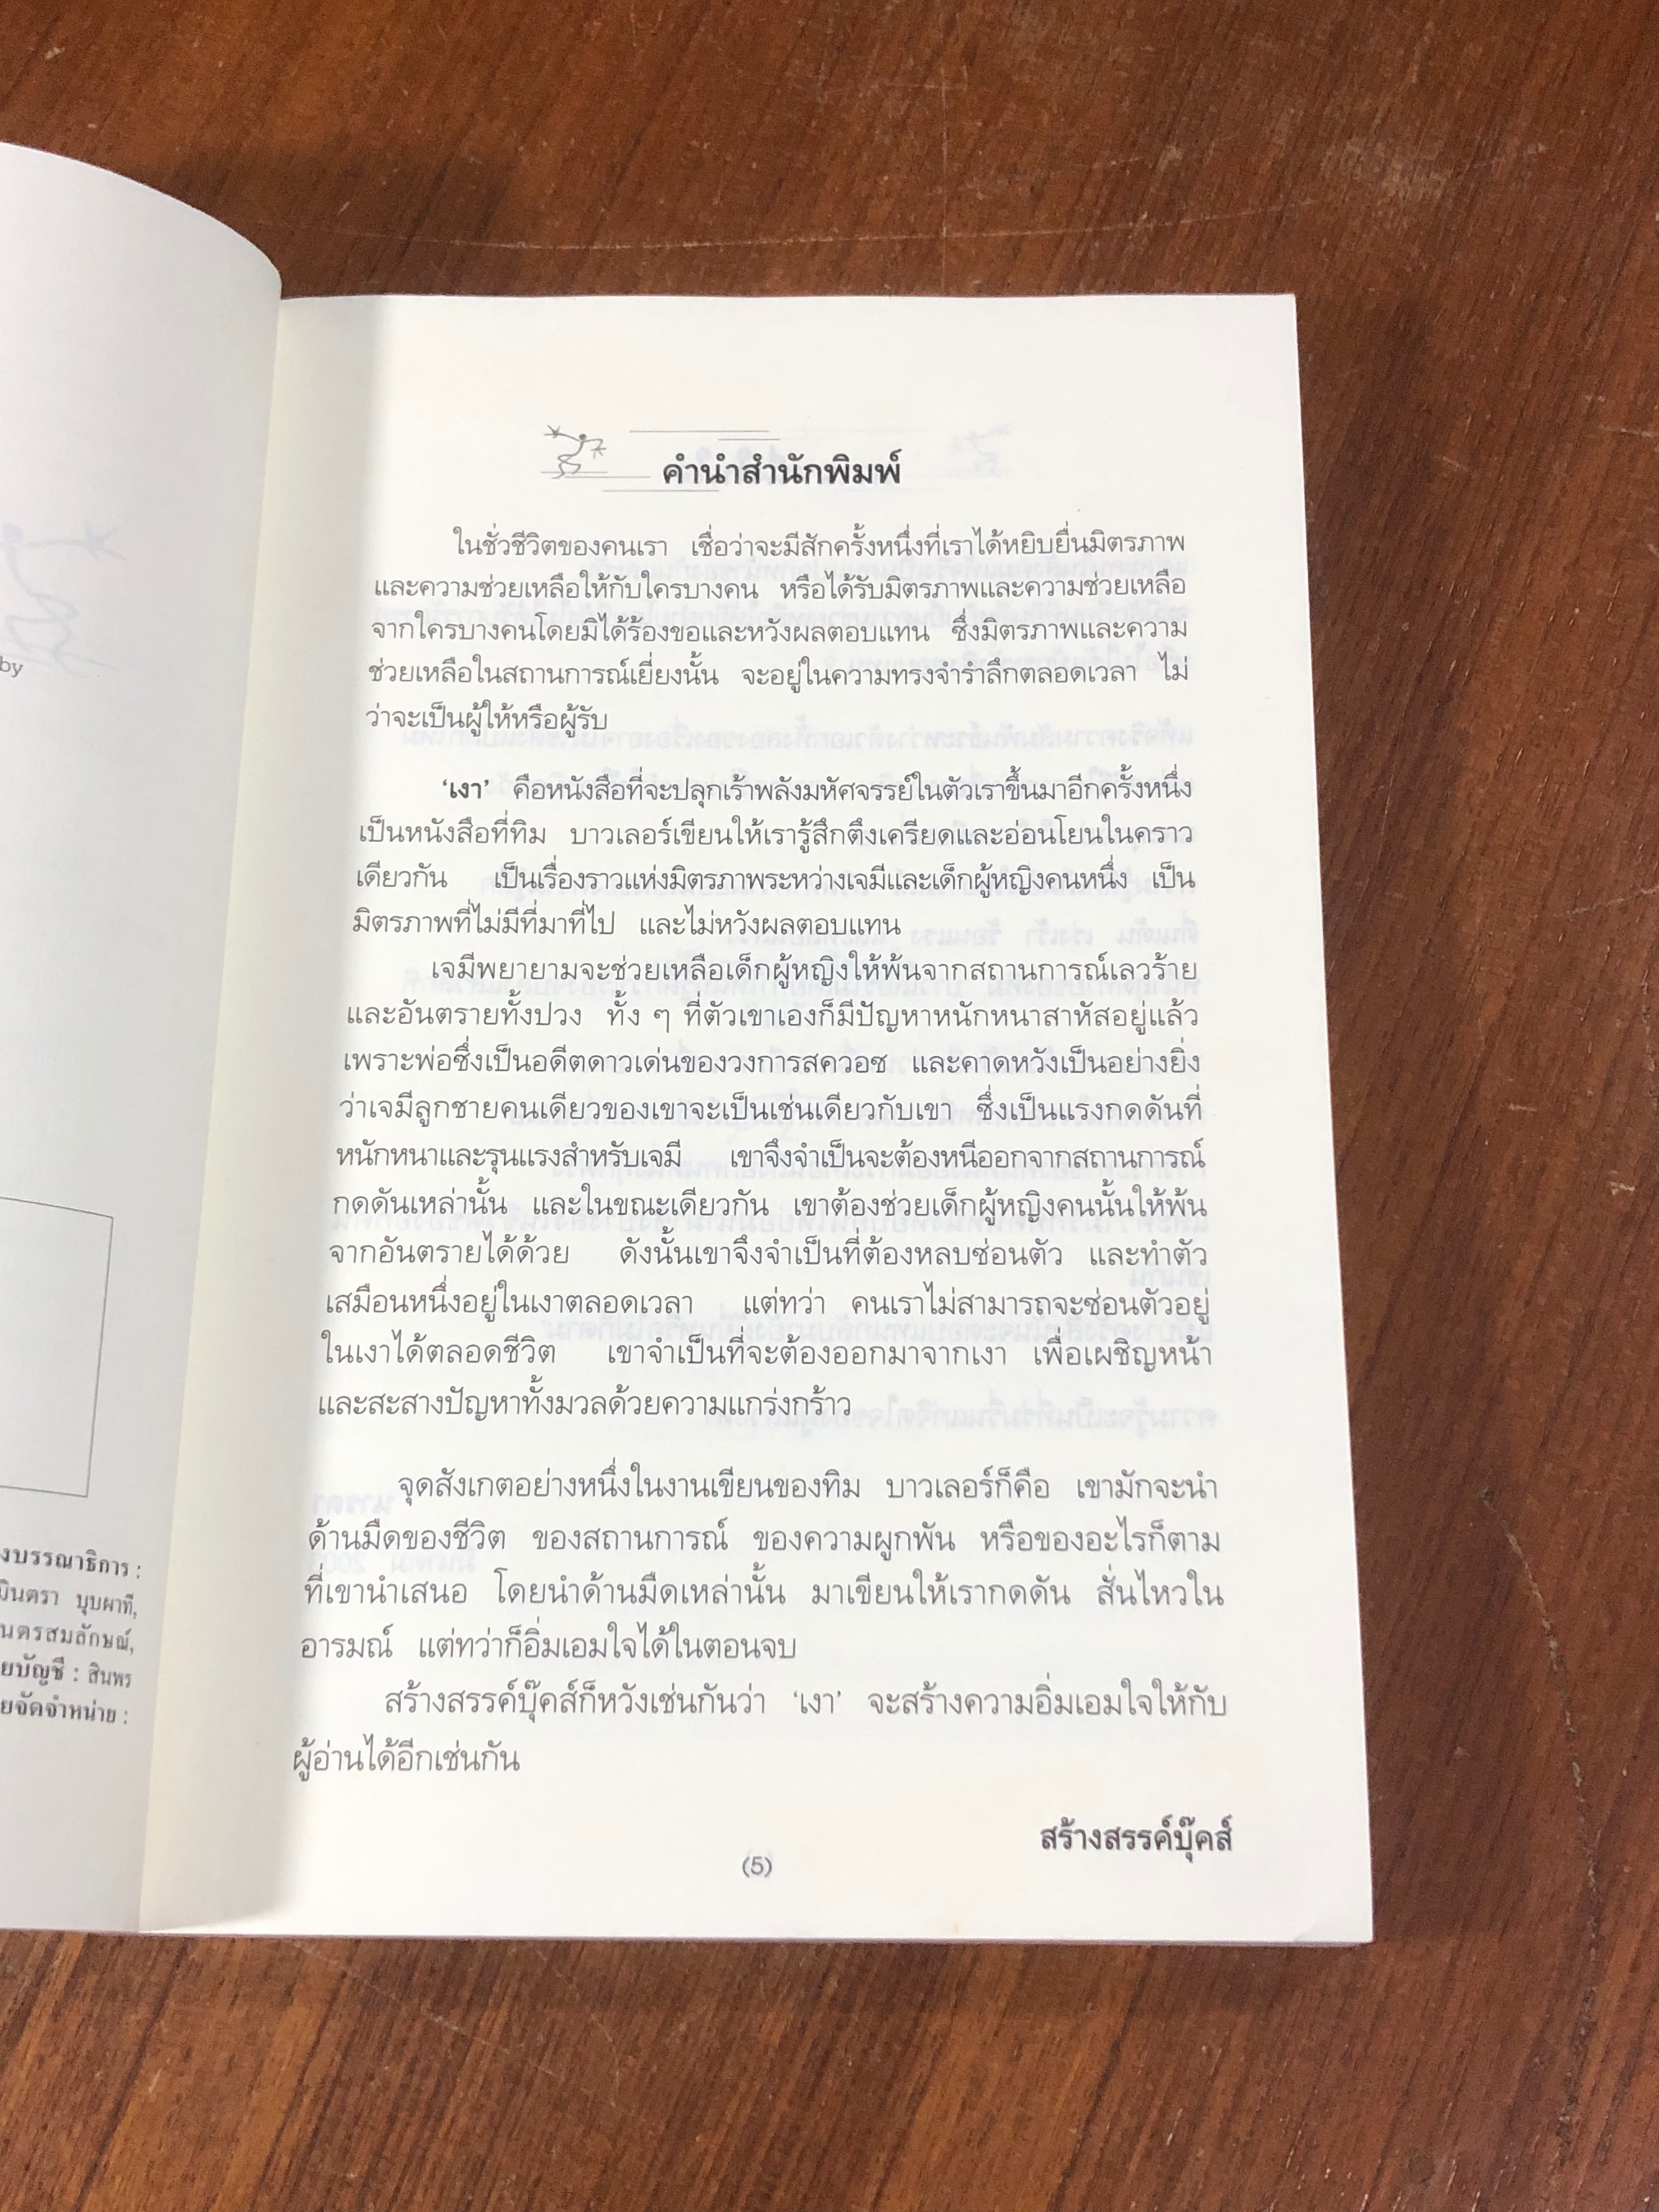 by
งบรรณาธิการ :
มินตรา บุบผาที,
นตรสมลักษณ์,
ยบัญชี : สินพร
ยจัดจำหน่าย :
คำนำสำนักพิมพ์
ในชั่วชีวิตของคนเรา เชื่อว่าจะมีสักครั้งหนึ่งที่เราได้หยิบยื่นมิตรภาพ
และความช่วยเหลือให้กับใครบางคน หรือได้รับมิตรภาพและความช่วยเหลือ
จากใครบางคนโดยมิได้ร้องขอและหวังผลตอบแทน ซึ่งมิตรภาพและความ
ช่วยเหลือในสถานการณ์เยี่ยงนั้น จะอยู่ในความทรงจำรำลึกตลอดเวลา ไม่
ว่าจะเป็นผู้ให้หรือผู้รับ
‘เงา’ คือหนังสือที่จะปลุกเร้าพลังมหัศจรรย์ในตัวเราขึ้นมาอีกครั้งหนึ่ง
เป็นหนังสือที่ทิม บาวเลอร์เขียนให้เรารู้สึกตึงเครียดและอ่อนโยนในคราว
เดียวกัน เป็นเรื่องราวแห่งมิตรภาพระหว่างเจมีและเด็กผู้หญิงคนหนึ่ง เป็น
มิตรภาพที่ไม่มีที่มาที่ไป และไม่หวังผลตอบแทน
เจมีพยายามจะช่วยเหลือเด็กผู้หญิงให้พ้นจากสถานการณ์เลวร้าย
และอันตรายทั้งปวง ทั้ง ๆ ที่ตัวเขาเองก็มีปัญหาหนักหนาสาหัสอยู่แล้ว
เพราะพ่อซึ่งเป็นอดีตดาวเด่นของวงการสควอช และคาดหวังเป็นอย่างยิ่ง
ว่าเจมีลูกชายคนเดียวของเขาจะเป็นเช่นเดียวกับเขา ซึ่งเป็นแรงกดดันที่
หนักหนาและรุนแรงสำหรับเจมี เขาจึงจำเป็นจะต้องหนีออกจากสถานการณ์
กดดันเหล่านั้น และในขณะเดียวกัน เขาต้องช่วยเด็กผู้หญิงคนนั้นให้พ้น
จากอันตรายได้ด้วย ดังนั้นเขาจึงจำเป็นที่ต้องหลบซ่อนตัว และทำตัว
เสมือนหนึ่งอยู่ในเงาตลอดเวลา แต่ทว่า คนเราไม่สามารถจะซ่อนตัวอยู่
ในเงาได้ตลอดชีวิต เขาจำเป็นที่จะต้องออกมาจากเงา เพื่อเผชิญหน้า
และสะสางปัญหาทั้งมวลด้วยความแกร่งกร้าว
จุดสังเกตอย่างหนึ่งในงานเขียนของทิม บาวเลอร์ก็คือ เขามักจะนำ
ด้านมืดของชีวิต ของสถานการณ์ ของความผูกพัน หรือของอะไรก็ตาม
ที่เขานำเสนอ โดยนำด้านมืดเหล่านั้น มาเขียนให้เรากดดัน สั่นไหวใน
อารมณ์ แต่ทว่าก็อิ่มเอมใจได้ในตอนจบ
สร้างสรรค์บุ๊คส์ก็หวังเช่นกันว่า ‘เงา’ จะสร้างความอิ่มเอมใจให้กับ
ผู้อ่านได้อีกเช่นกัน
สร้างสรรค์บุ๊คส์
(5)